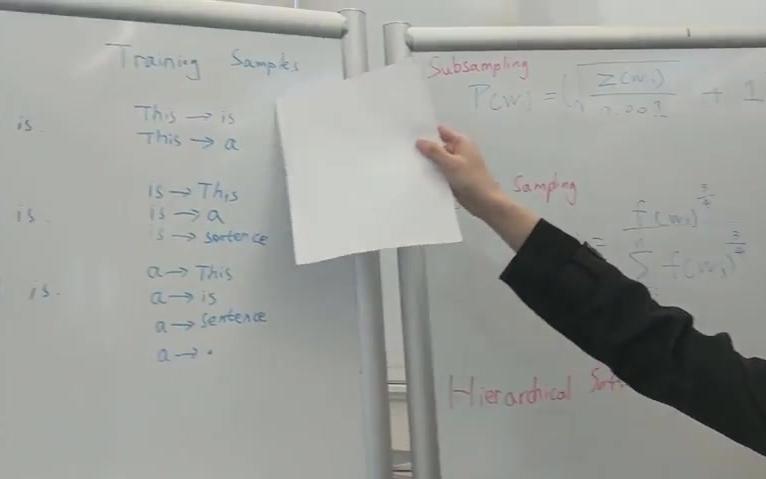 Training Samples
is.
This → is
This → a
is.
is → This
is → a
is → sentence
is.
a → This
a → is
a → sentence
a → .
Subsampling
P(w) = (√ z(wᵢ) / 0.001 + 1
Sampling
= f(wᵢ)^3/4 / Σ f(wⱼ)^3/4
Hierarchical